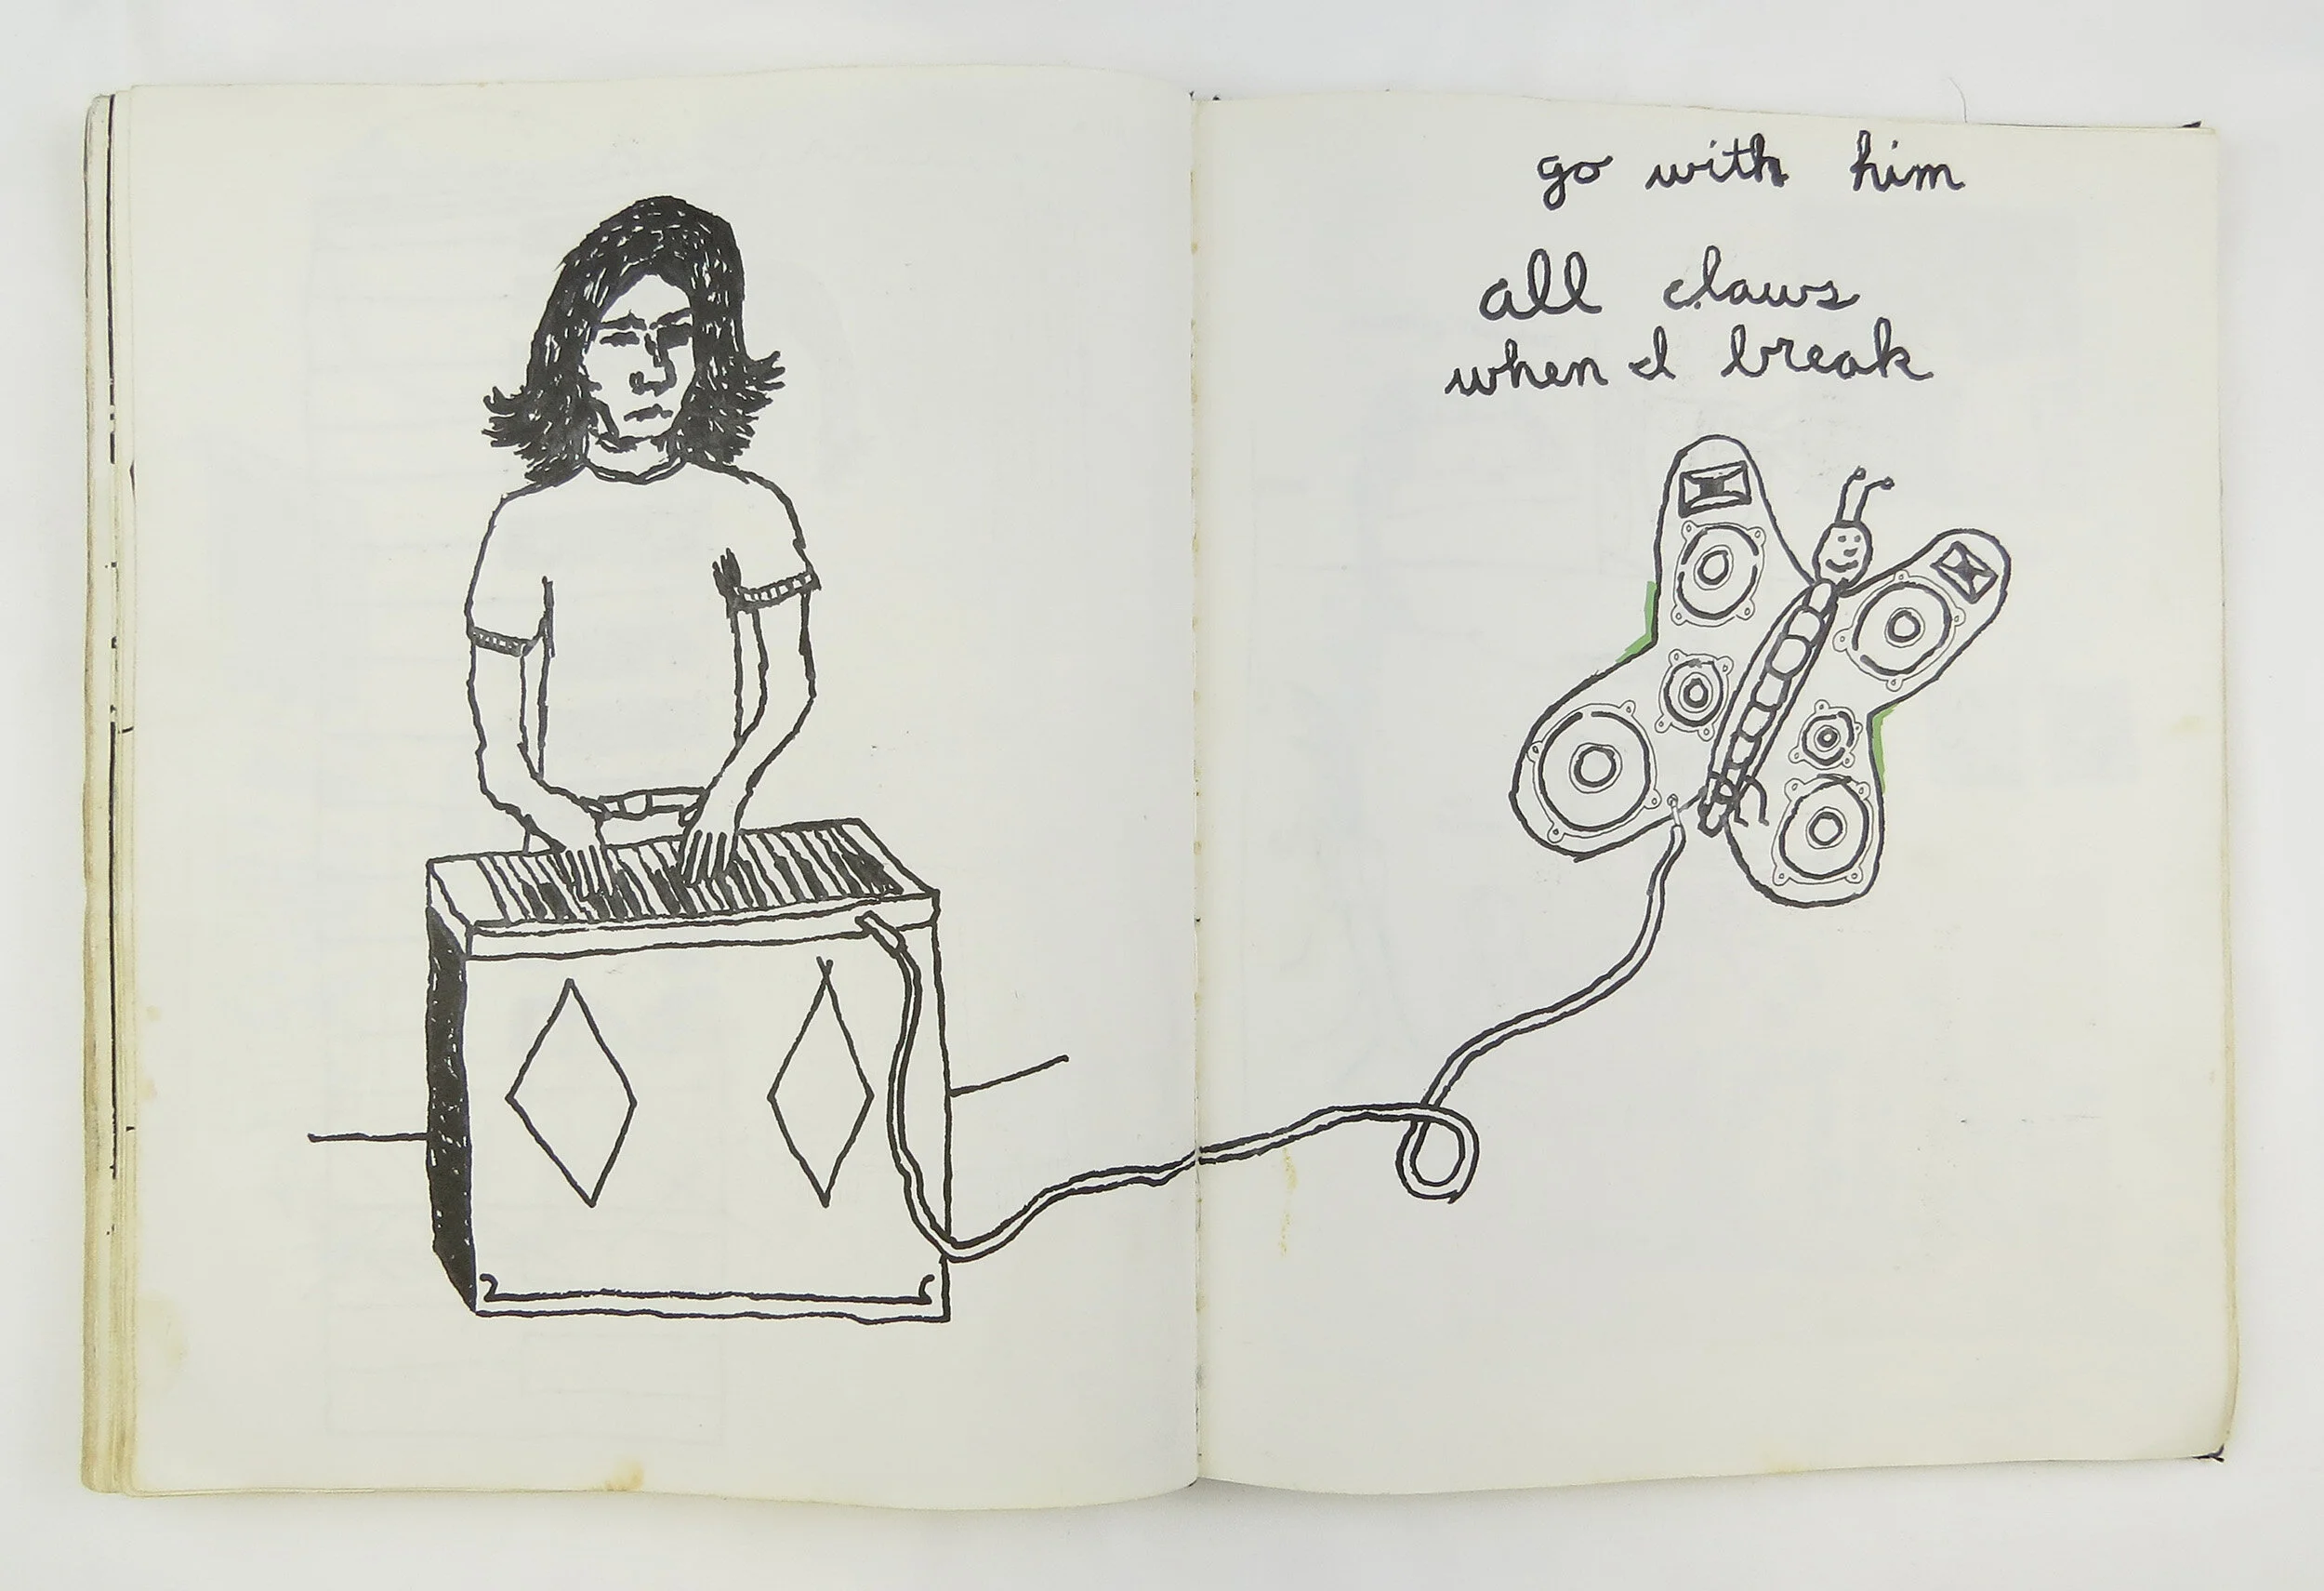 go with him
all claws
when I break